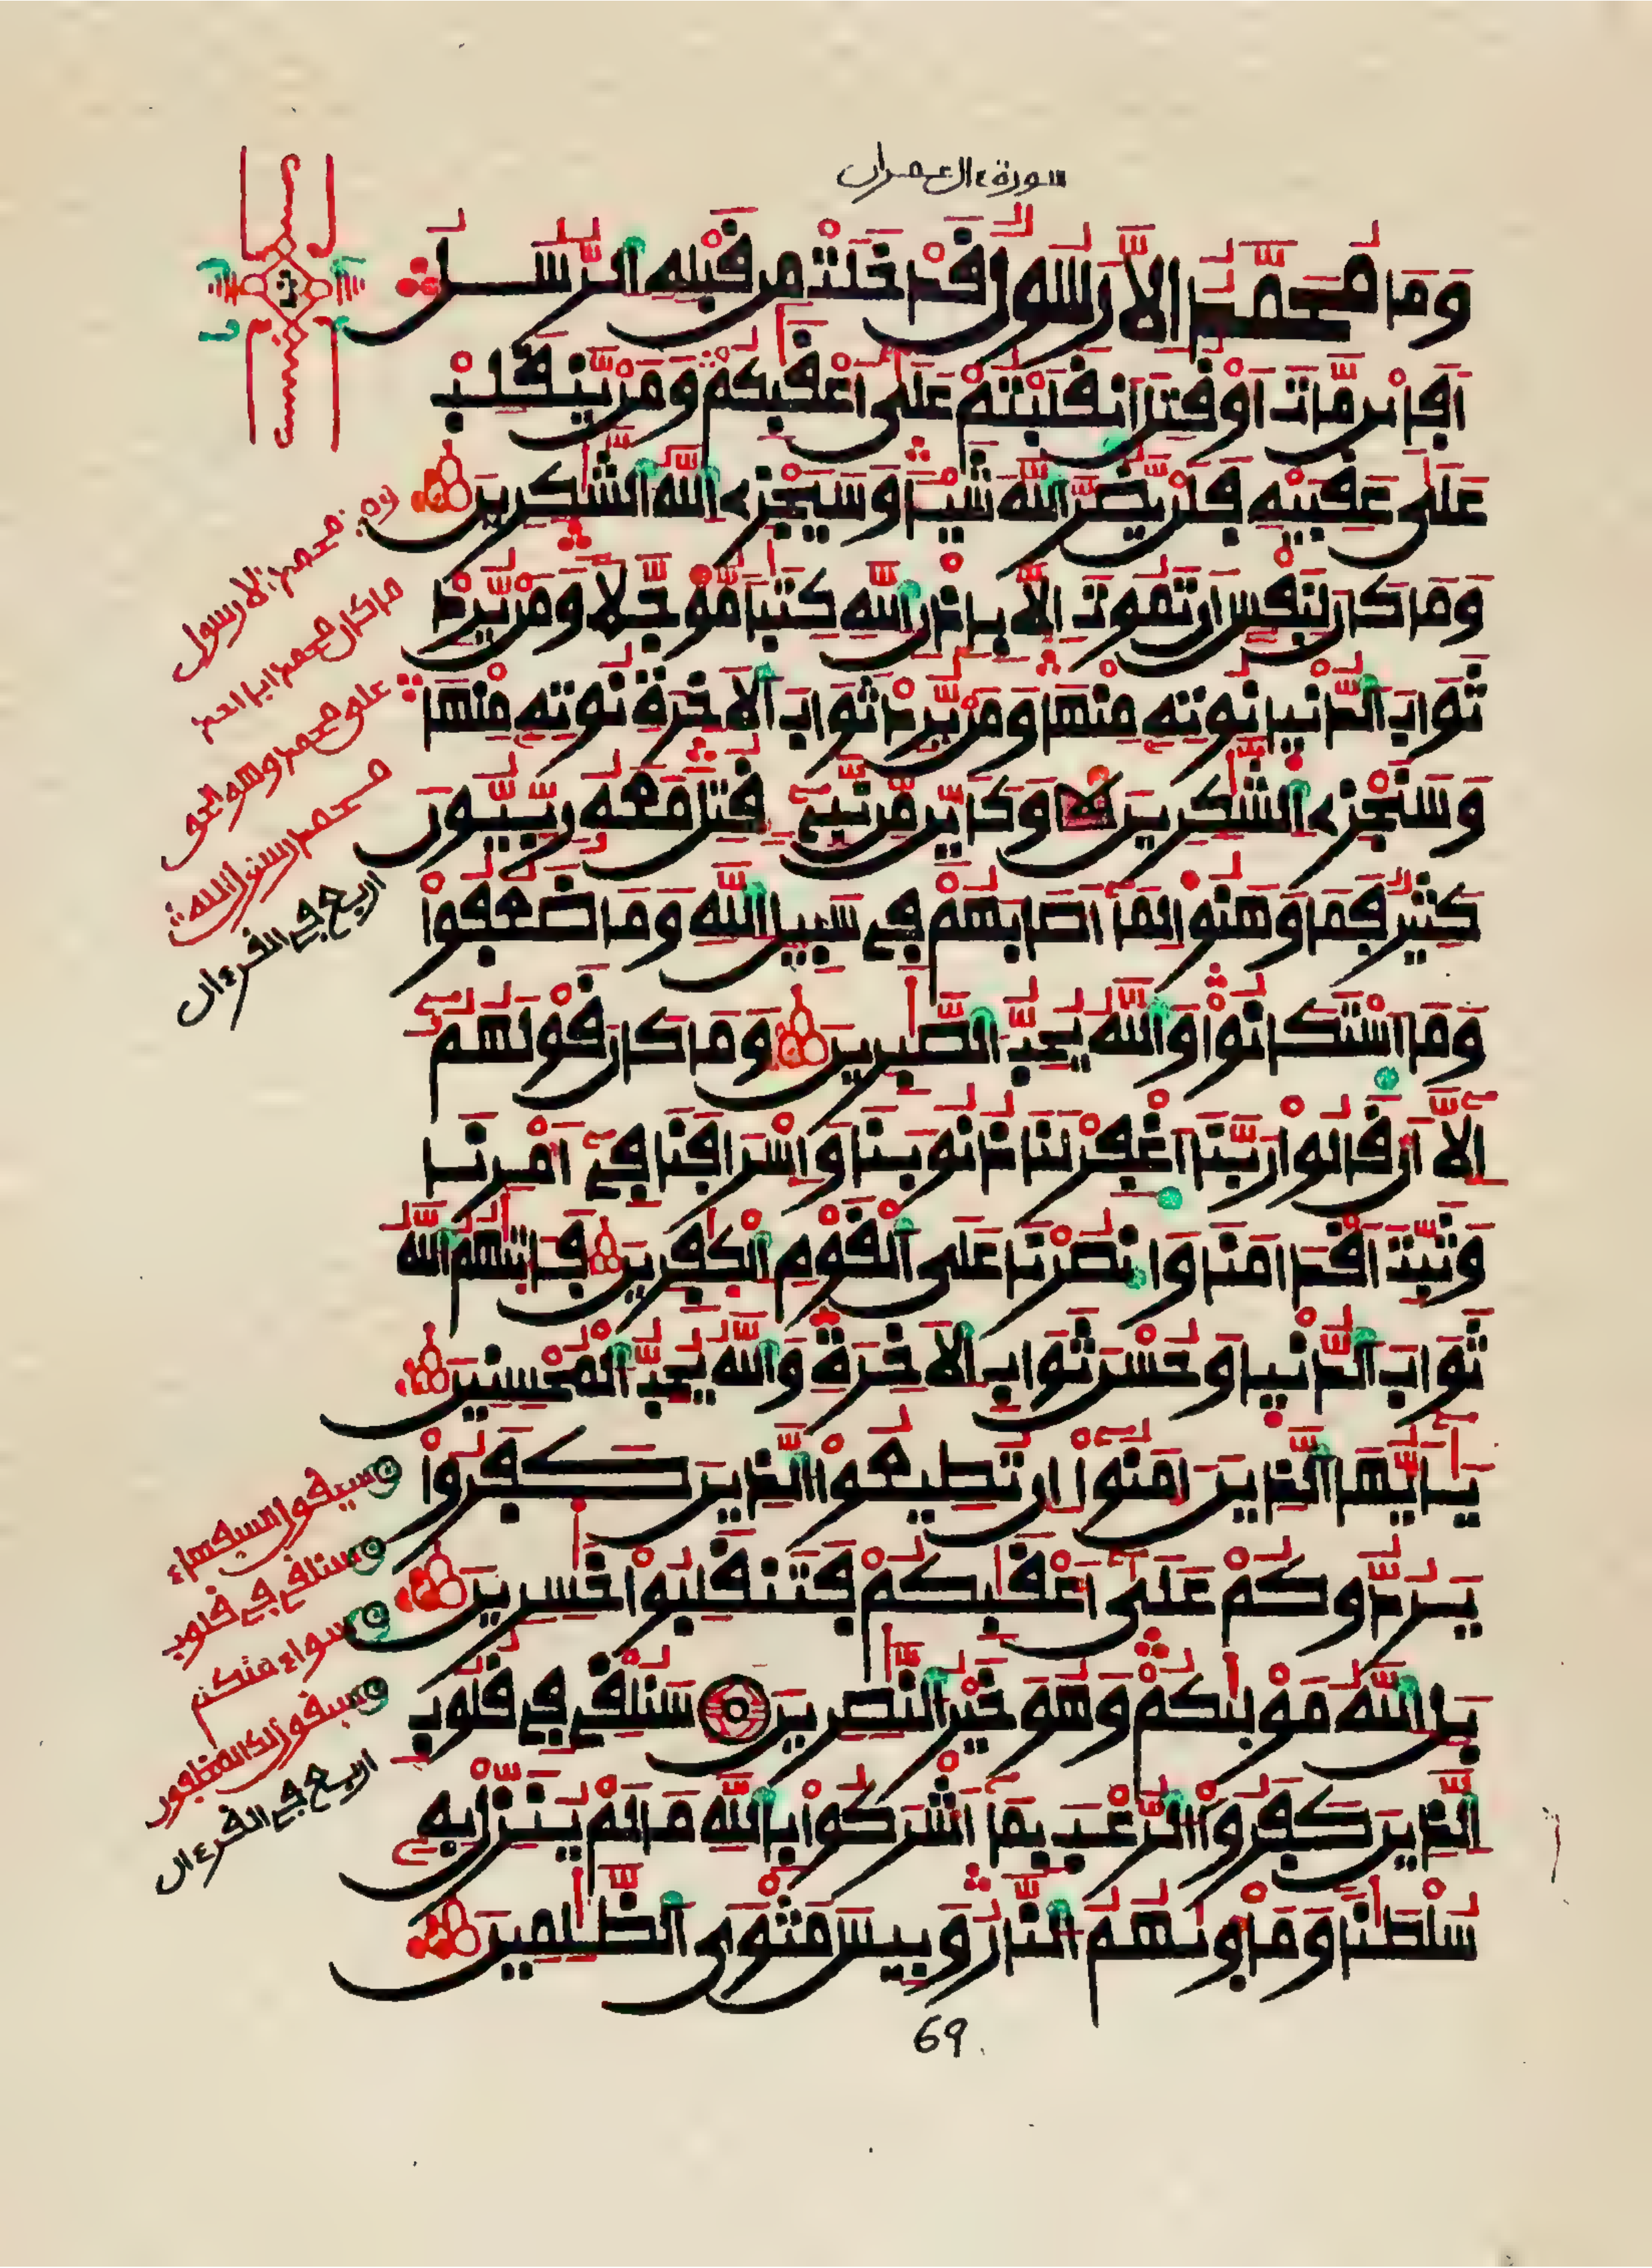 سورة ءال عمران
وَمَا مُحَمَّدٌ اِلَّا رَسُولٌ قَدْ خَلَتْ مِن قَبْلِهِ اِ۬لرُّسُلُ
أَفَإِيْن مَّاتَ أَوْ قُتِلَ اَ۪نقَلَبْتُمْ عَلَىٰ أَعْقَٰبِكُمْ وَمَنْ يَّنقَلِبْ
عَلَىٰ عَقِبَيْهِ فَلَنْ يَّضُرَّ اَ۬للَّهَ شَيْـٔاً وَسَيَجْزِے اِ۬للَّهُ اُ۬لشَّٰكِرِينَ
وَمَا كَانَ لِنَفْسٍ اَن تَمُوتَ إِلَّا بِإِذْنِ اِ۬للَّهِ كِتَٰباً مُّؤَجَّلاً وَمَنْ يُّرِدْ
ثَوَابَ اَ۬لدُّنْيَا نُوتِهِ مِنْهَا وَمَنْ يُّرِدْ ثَوَابَ اَ۬لَاخِرَةِ نُوتِهِ مِنْهَا
وَسَنَجْزِے اِ۬لشَّٰكِرِينَ وَكَأَيِّن مِّن نَّبِےٓءٍ قُتِلَ مَعَهُ رِبِّيُّونَ
كَثِيرٌ فَمَا وَهَنُوا لِمَا أَصَابَهُمْ فِے سَبِيلِ اِ۬للَّهِ وَمَا ضَعُفُوا
وَمَا اَ۪سْتَكَانُوا وَاللَّهُ يُحِبُّ اُ۬لصَّٰبِرِينَ وَمَا كَانَ قَوْلَهُمُ
إِلَّا أَن قَالُوا رَبَّنَا اَ۪غْفِرْ لَنَا ذُنُوبَنَا وَإِسْرَافَنَا فِے أَمْرِنَا
وَثَبِّتَ اَقْدَامَنَا وَانصُرْنَا عَلَى اَ۬لْقَوْمِ اِ۬لْكٰفِرِينَ فَـَٔاتَيٰهُمُ اُ۬للَّهُ
ثَوَابَ اَ۬لدُّنْيَا وَحُسْنَ ثَوَابِ اِ۬لَاخِرَةِ وَاللَّهُ يُحِبُّ اُ۬لْمُحْسِنِينَ
يَٰأَيُّهَا اَ۬لذِينَ ءَامَنُوا إِن تُطِيعُوا اُ۬لذِينَ كَفَرُوا
يَرُدُّوكُمْ عَلَىٰ أَعْقَٰبِكُمْ فَتَنقَلِبُوا خَٰسِرِينَ
بَلِ اِ۬للَّهُ مَوْلَيٰكُمْ وَهُوَ خَيْرُ اُ۬لنَّٰصِرِينَ سَنُلْقِے فِے قُلُوبِ
اِ۬لذِينَ كَفَرُوا اُ۬لرُّعْبَ بِمَا أَشْرَكُوا بِاللَّهِ مَا لَمْ يُنَزِّلْ بِهِ
سُلْطَٰناً وَمَأْوَيٰهُمُ اُ۬لنَّارُ وَبِيسَ مَثْوَى اَ۬لظَّٰلِمِينَ
محمد الا رسول
ما كان محمد ابا احد
على محمد وهو الحق
محمد رسول الله
اربع في القرءان
سيقول السفهاء
سنلقي في قلوب
سواء منكم
اربع في القرءان
69